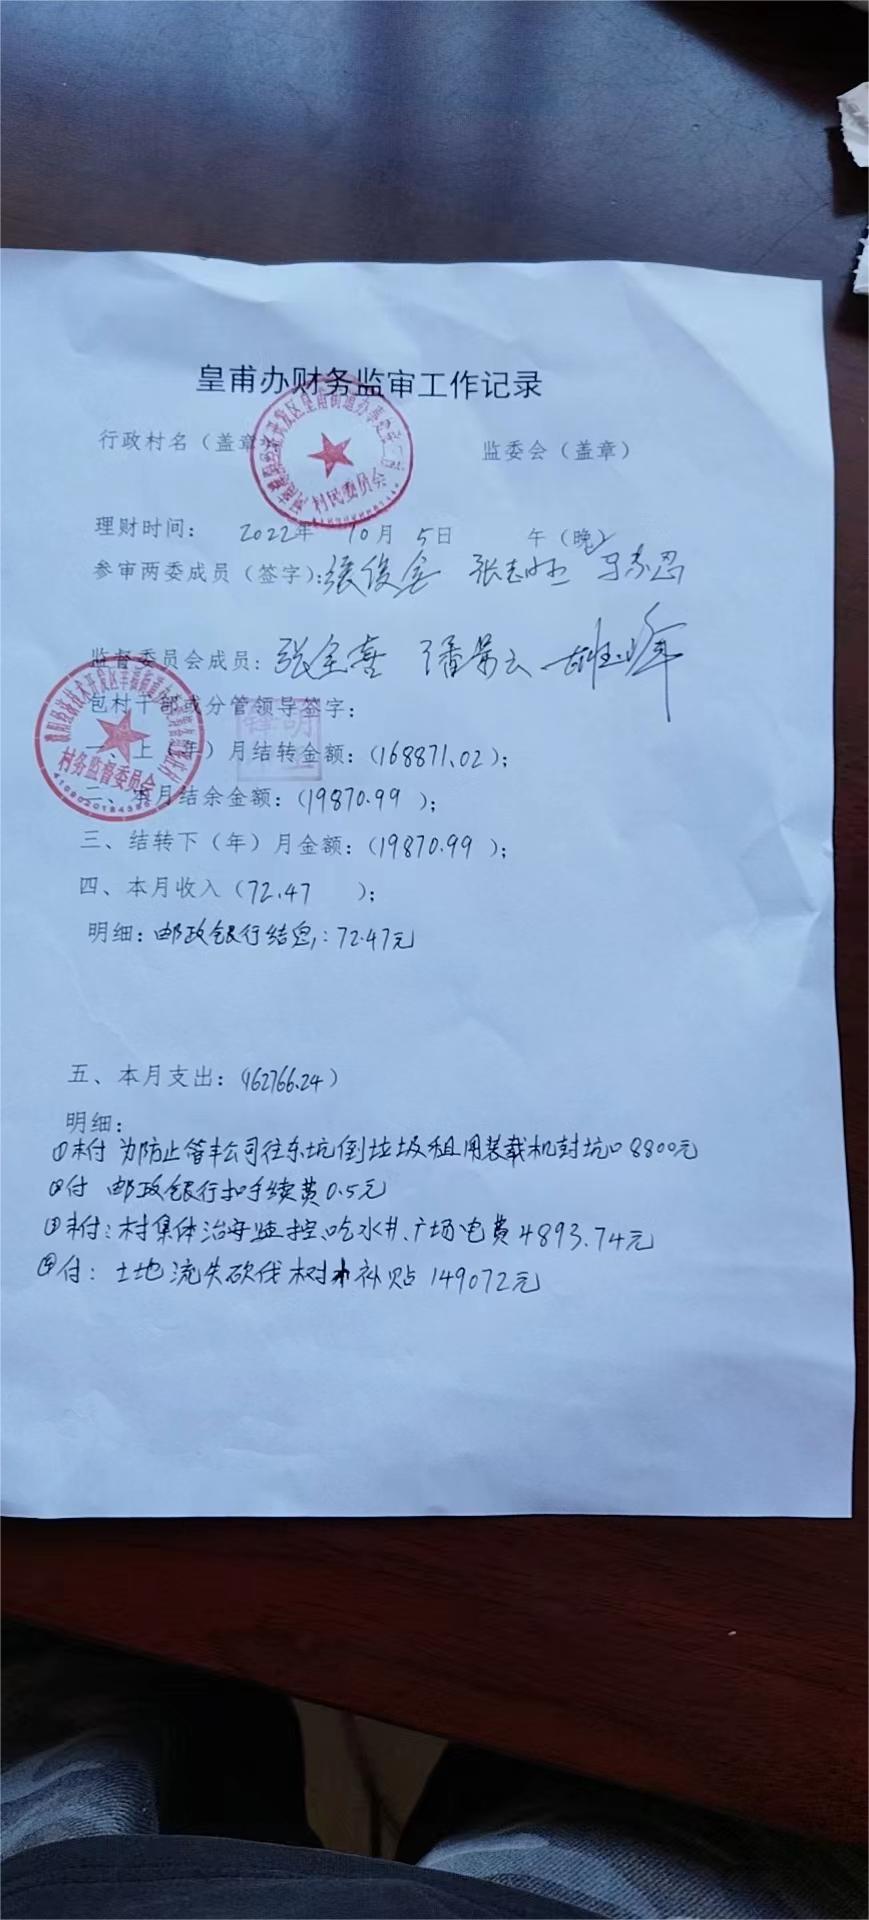 皇甫办财务监审工作记录
行政村名（盖章） 监委会（盖章）
村民委员会
理财时间： 2022年 10月 5日 午（晚）
参审两委成员（签字）：张俊 张志
监督委员会成员：张全喜 潘 云 峰
包村干部或分管领导签字：
村务监督委员会
一、上（年）月结转金额：（168871.02）；
二、本月结余金额：（19870.99 ）；
三、结转下（年）月金额：（19870.99 ）；
四、本月收入（72.47 ）；
明细：邮政银行结息：72.47元
五、本月支出：（162766.24）
明细：
①未付 为防止管丰公司往东坑倒垃圾租用装载机封坑口8800元
②付 邮政银行扣手续费0.5元
③未付：村集体治安监控、吃水井、广场电费4893.74元
④付：土地流失砍伐树木补贴149072元